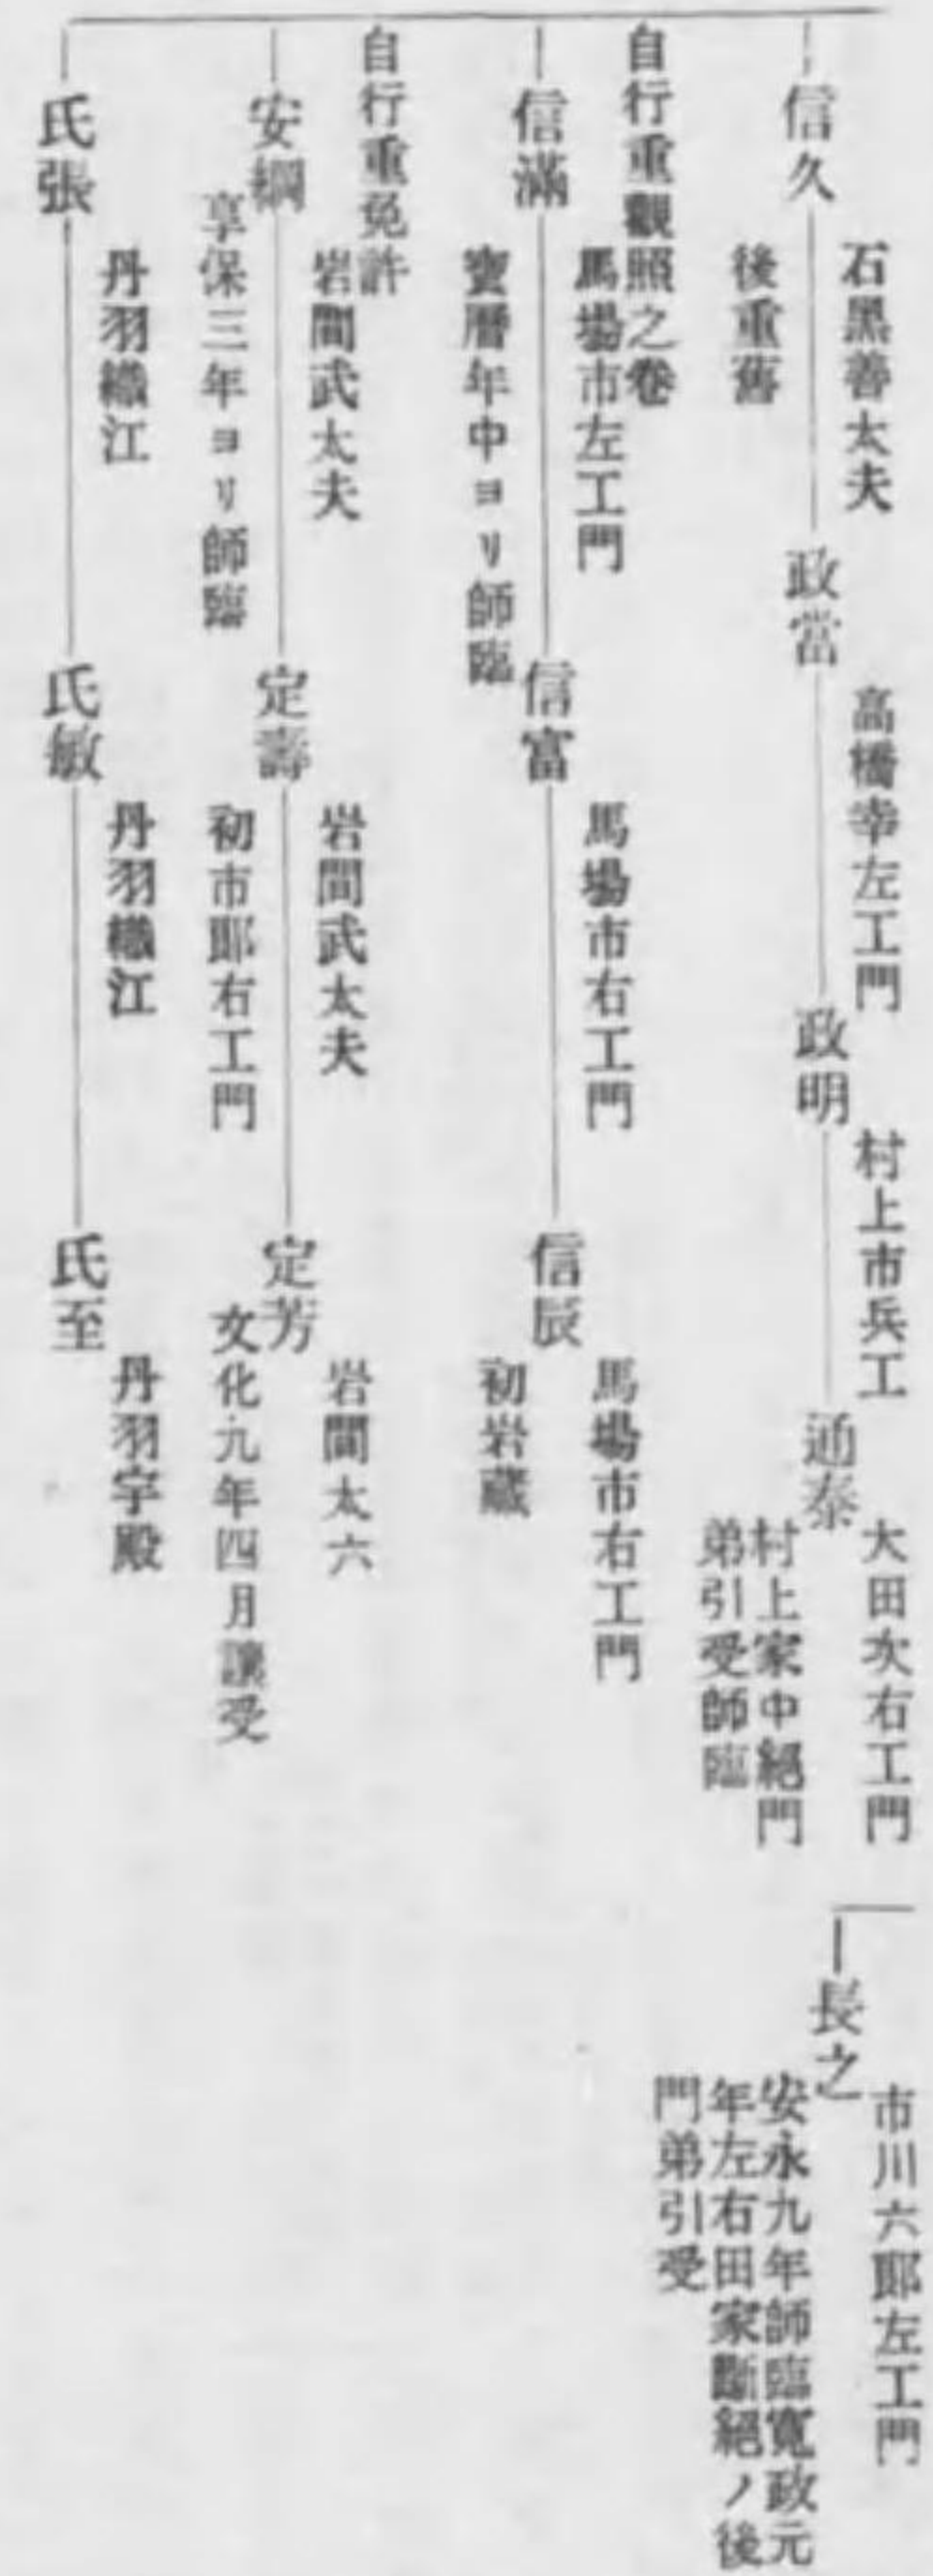 信久
石黑善太夫
後重舊
政當
高橋幸左工門
政明
村上市兵工
通泰
大田次右工門
村上家中絕門
弟引受師臨
長之
市川六郎左工門
安永九年師臨寬政元
年左右田家斷絕ノ後
門弟引受
自行重觀照之卷
信滿
馬場市左工門
寶曆年中ヨリ師臨
信富
馬場市右工門
信辰
馬場市右工門
初岩藏
自行重免許
安綱
岩間武太夫
享保三年ヨリ師臨
定壽
岩間武太夫
初市郎右工門
定芳
岩間太六
文化九年四月讓受
氏張
丹羽織江
氏敏
丹羽織江
氏至
丹羽宇殿